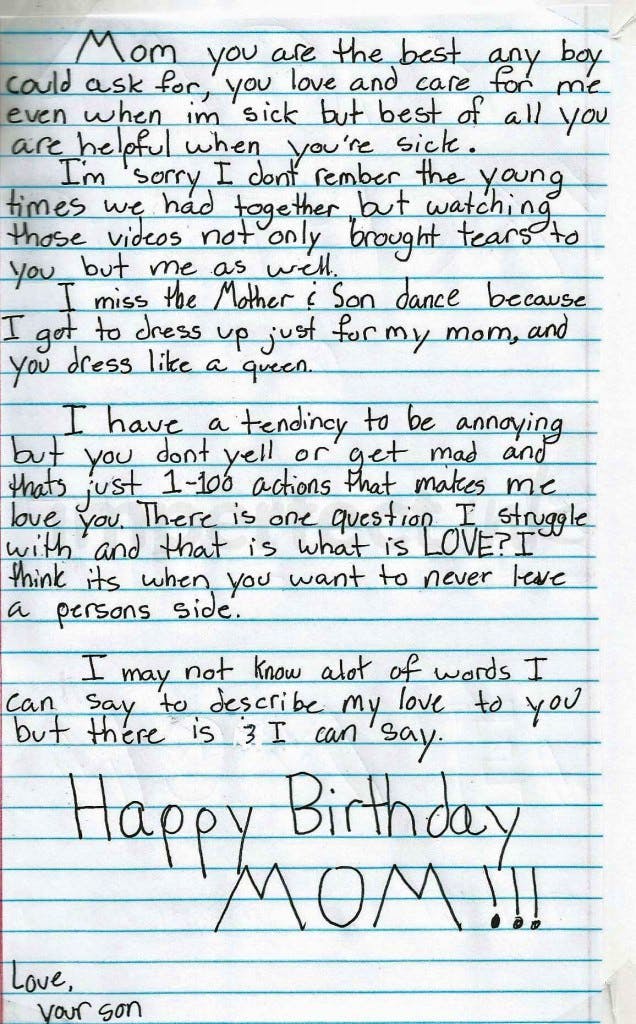 Mom you are the best any boy
could ask for, you love and care for me
even when im sick but best of all you
are helpful when you're sick.
I'm sorry I dont rember the young
times we had together but watching
those videos not only brought tears to
you but me as well.
I miss the Mother & Son dance because
I got to dress up just for my mom, and
you dress like a queen.
I have a tendincy to be annoying
but you dont yell or get mad and
thats just 1-100 actions that makes me
love you. There is one question I struggle
with and that is what is LOVE? I
think its when you want to never leve
a persons side.
I may not know alot of words I
can say to describe my love to you
but there is 3 I can say.
Happy Birthday
MOM!!!
Love,
your son